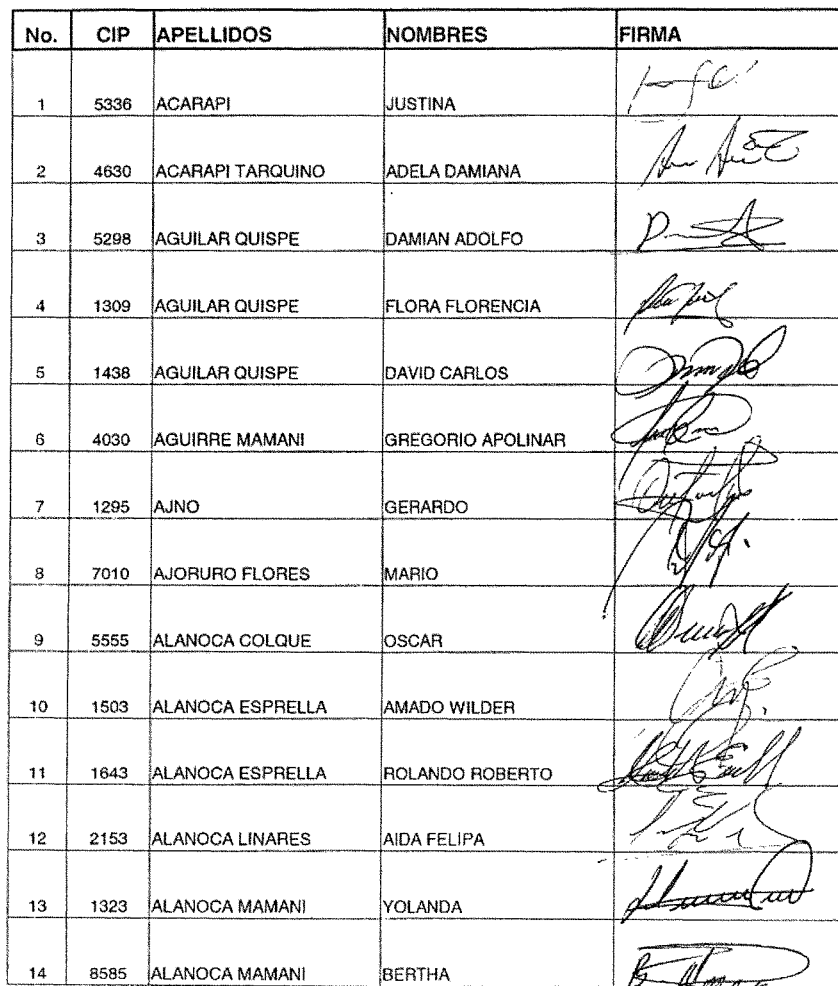 No. CIP APELLIDOS NOMBRES FIRMA
1 5336 ACARAPI JUSTINA
2 4630 ACARAPI TARQUINO ADELA DAMIANA
3 5298 AGUILAR QUISPE DAMIAN ADOLFO
4 1309 AGUILAR QUISPE FLORA FLORENCIA
5 1438 AGUILAR QUISPE DAVID CARLOS
6 4030 AGUIRRE MAMANI GREGORIO APOLINAR
7 1295 AJNO GERARDO
8 7010 AJORURO FLORES MARIO
9 5555 ALANOCA COLQUE OSCAR
10 1503 ALANOCA ESPRELLA AMADO WILDER
11 1643 ALANOCA ESPRELLA ROLANDO ROBERTO
12 2153 ALANOCA LINARES AIDA FELIPA
13 1323 ALANOCA MAMANI YOLANDA
14 8585 ALANOCA MAMANI BERTHA